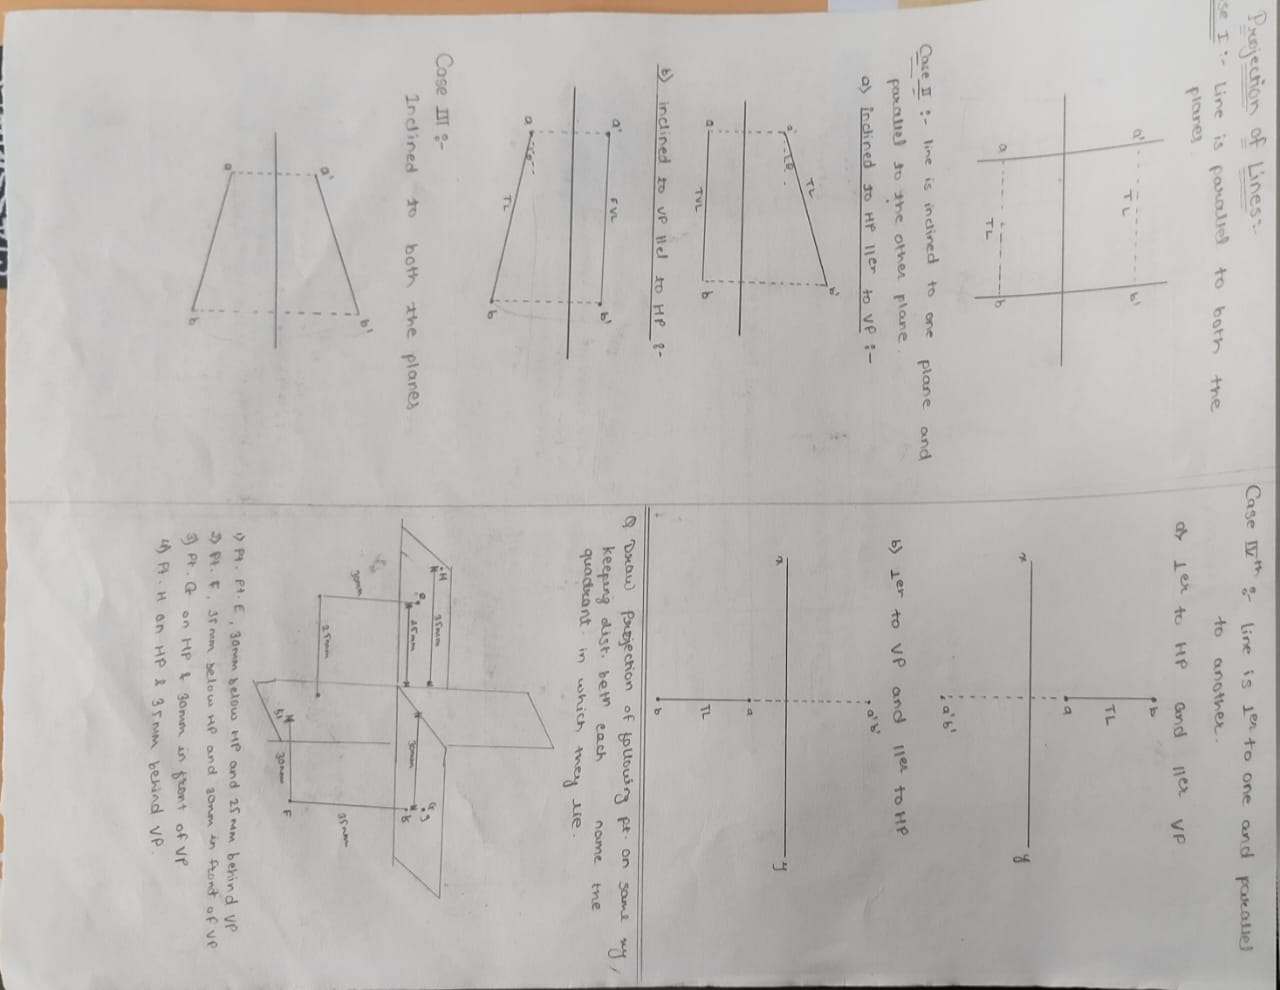 Projection of Lines:-
se I :- Line is parallel to both the
planes.
a' b'
TL
a b
TL
Case II :- line is inclined to one plane and
parallel to the other plane.
a) inclined to HP ller to VP :-
a' TL b'
θ
a b
TVL
b) inclined to VP llel to HP :-
a' FVL b'
a TL b
Case III :-
Inclined to both the planes
a' b'
a b
Case IVth :- line is ⊥er to one and parallel
to another.
a) ⊥er to HP and ller VP
b
TL
a
x y
a'b'
b) ⊥er to VP and ller to HP
a'b'
x y
a
TL
b
Q Draw projection of following pt. on same xy,
keeping dist. betn each name the
quadrant in which they lie.
H
35mm
25mm
30mm
G
30mm
25mm
35mm
F
30mm
1) Pt. Pt. E, 30mm below HP and 25mm behind VP
2) Pt. F, 35mm below HP and 30mm in front of VP
3) Pt. G on HP & 30mm in front of VP
4) Pt. H on HP & 35mm behind VP.